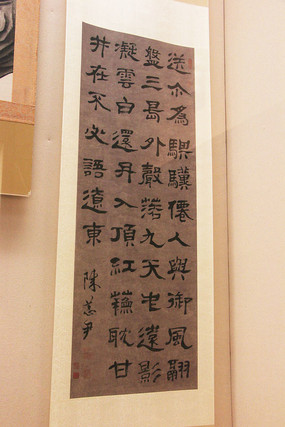 送尒為騏驥僊人與御風翩
盤三島外聲落九天中遠影
凝雲白還丹入頂紅蘓耽甘
井在不必語遼東
陳恭尹